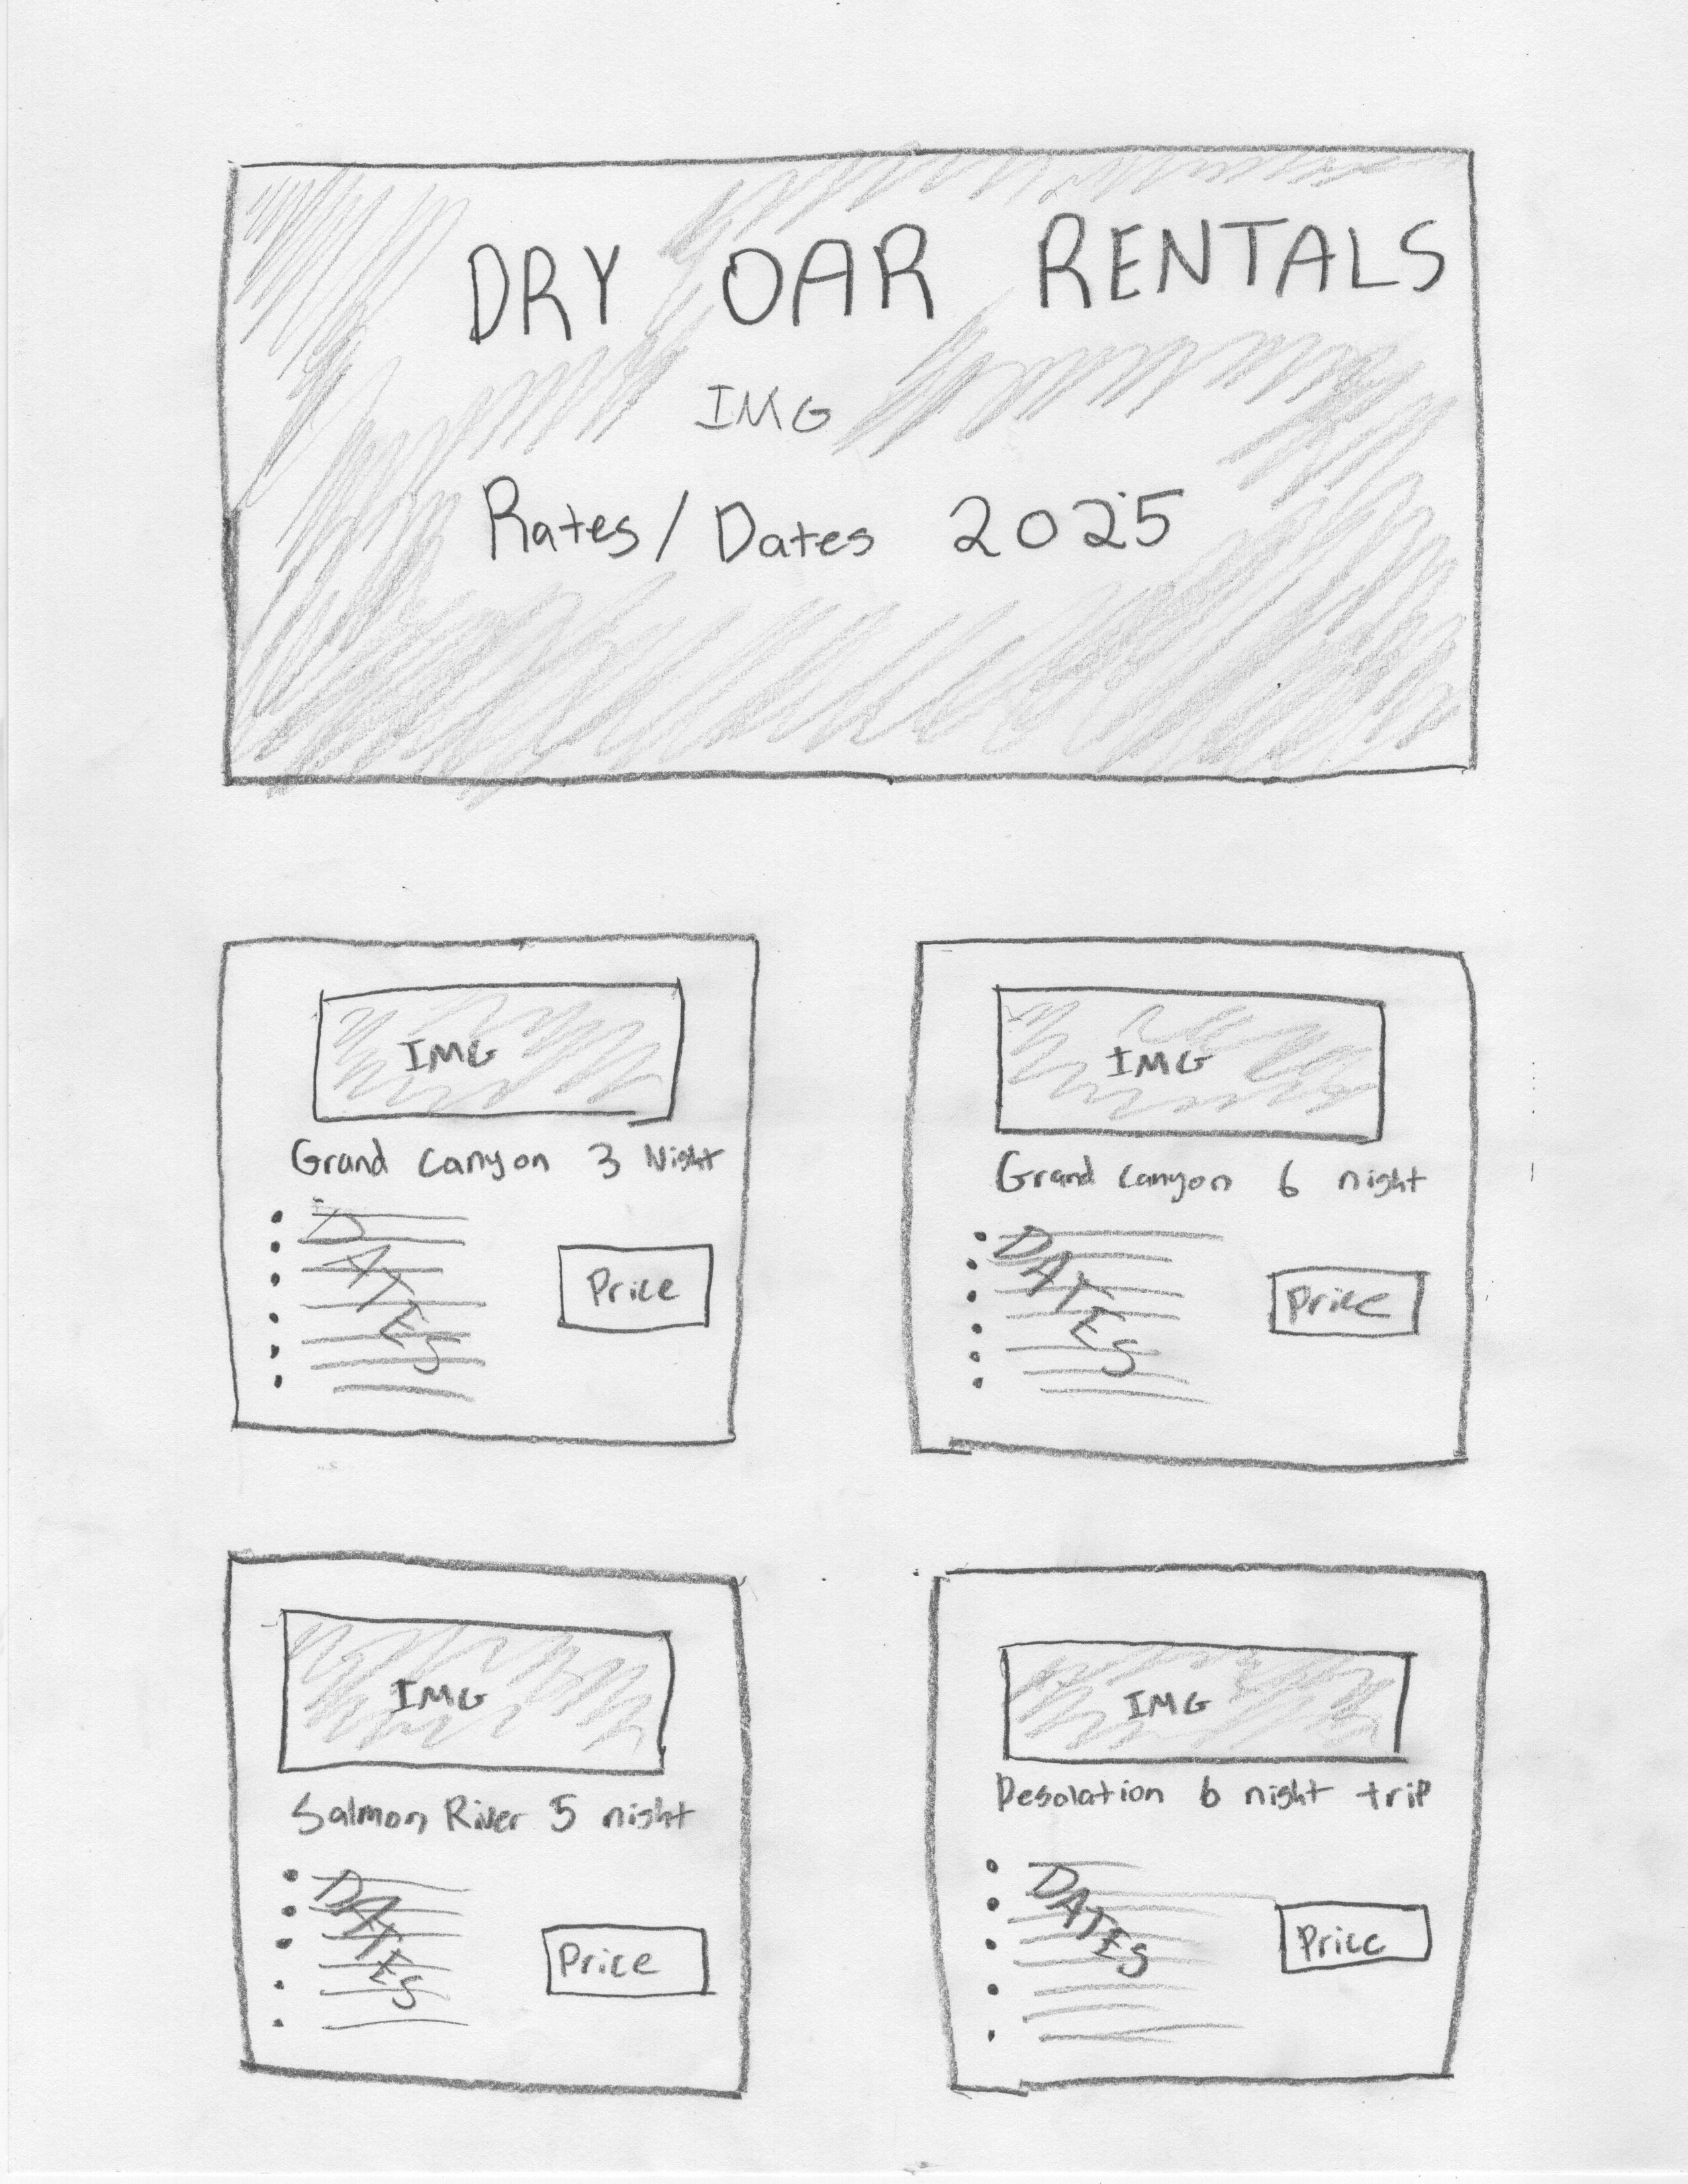 DRY OAR RENTALS
IMG
Rates/Dates 2025
IMG
Grand Canyon 3 Night
DATES
Price
IMG
Grand Canyon 6 night
DATES
Price
IMG
Salmon River 5 night
DATES
Price
IMG
Desolation 6 night trip
DATES
Price